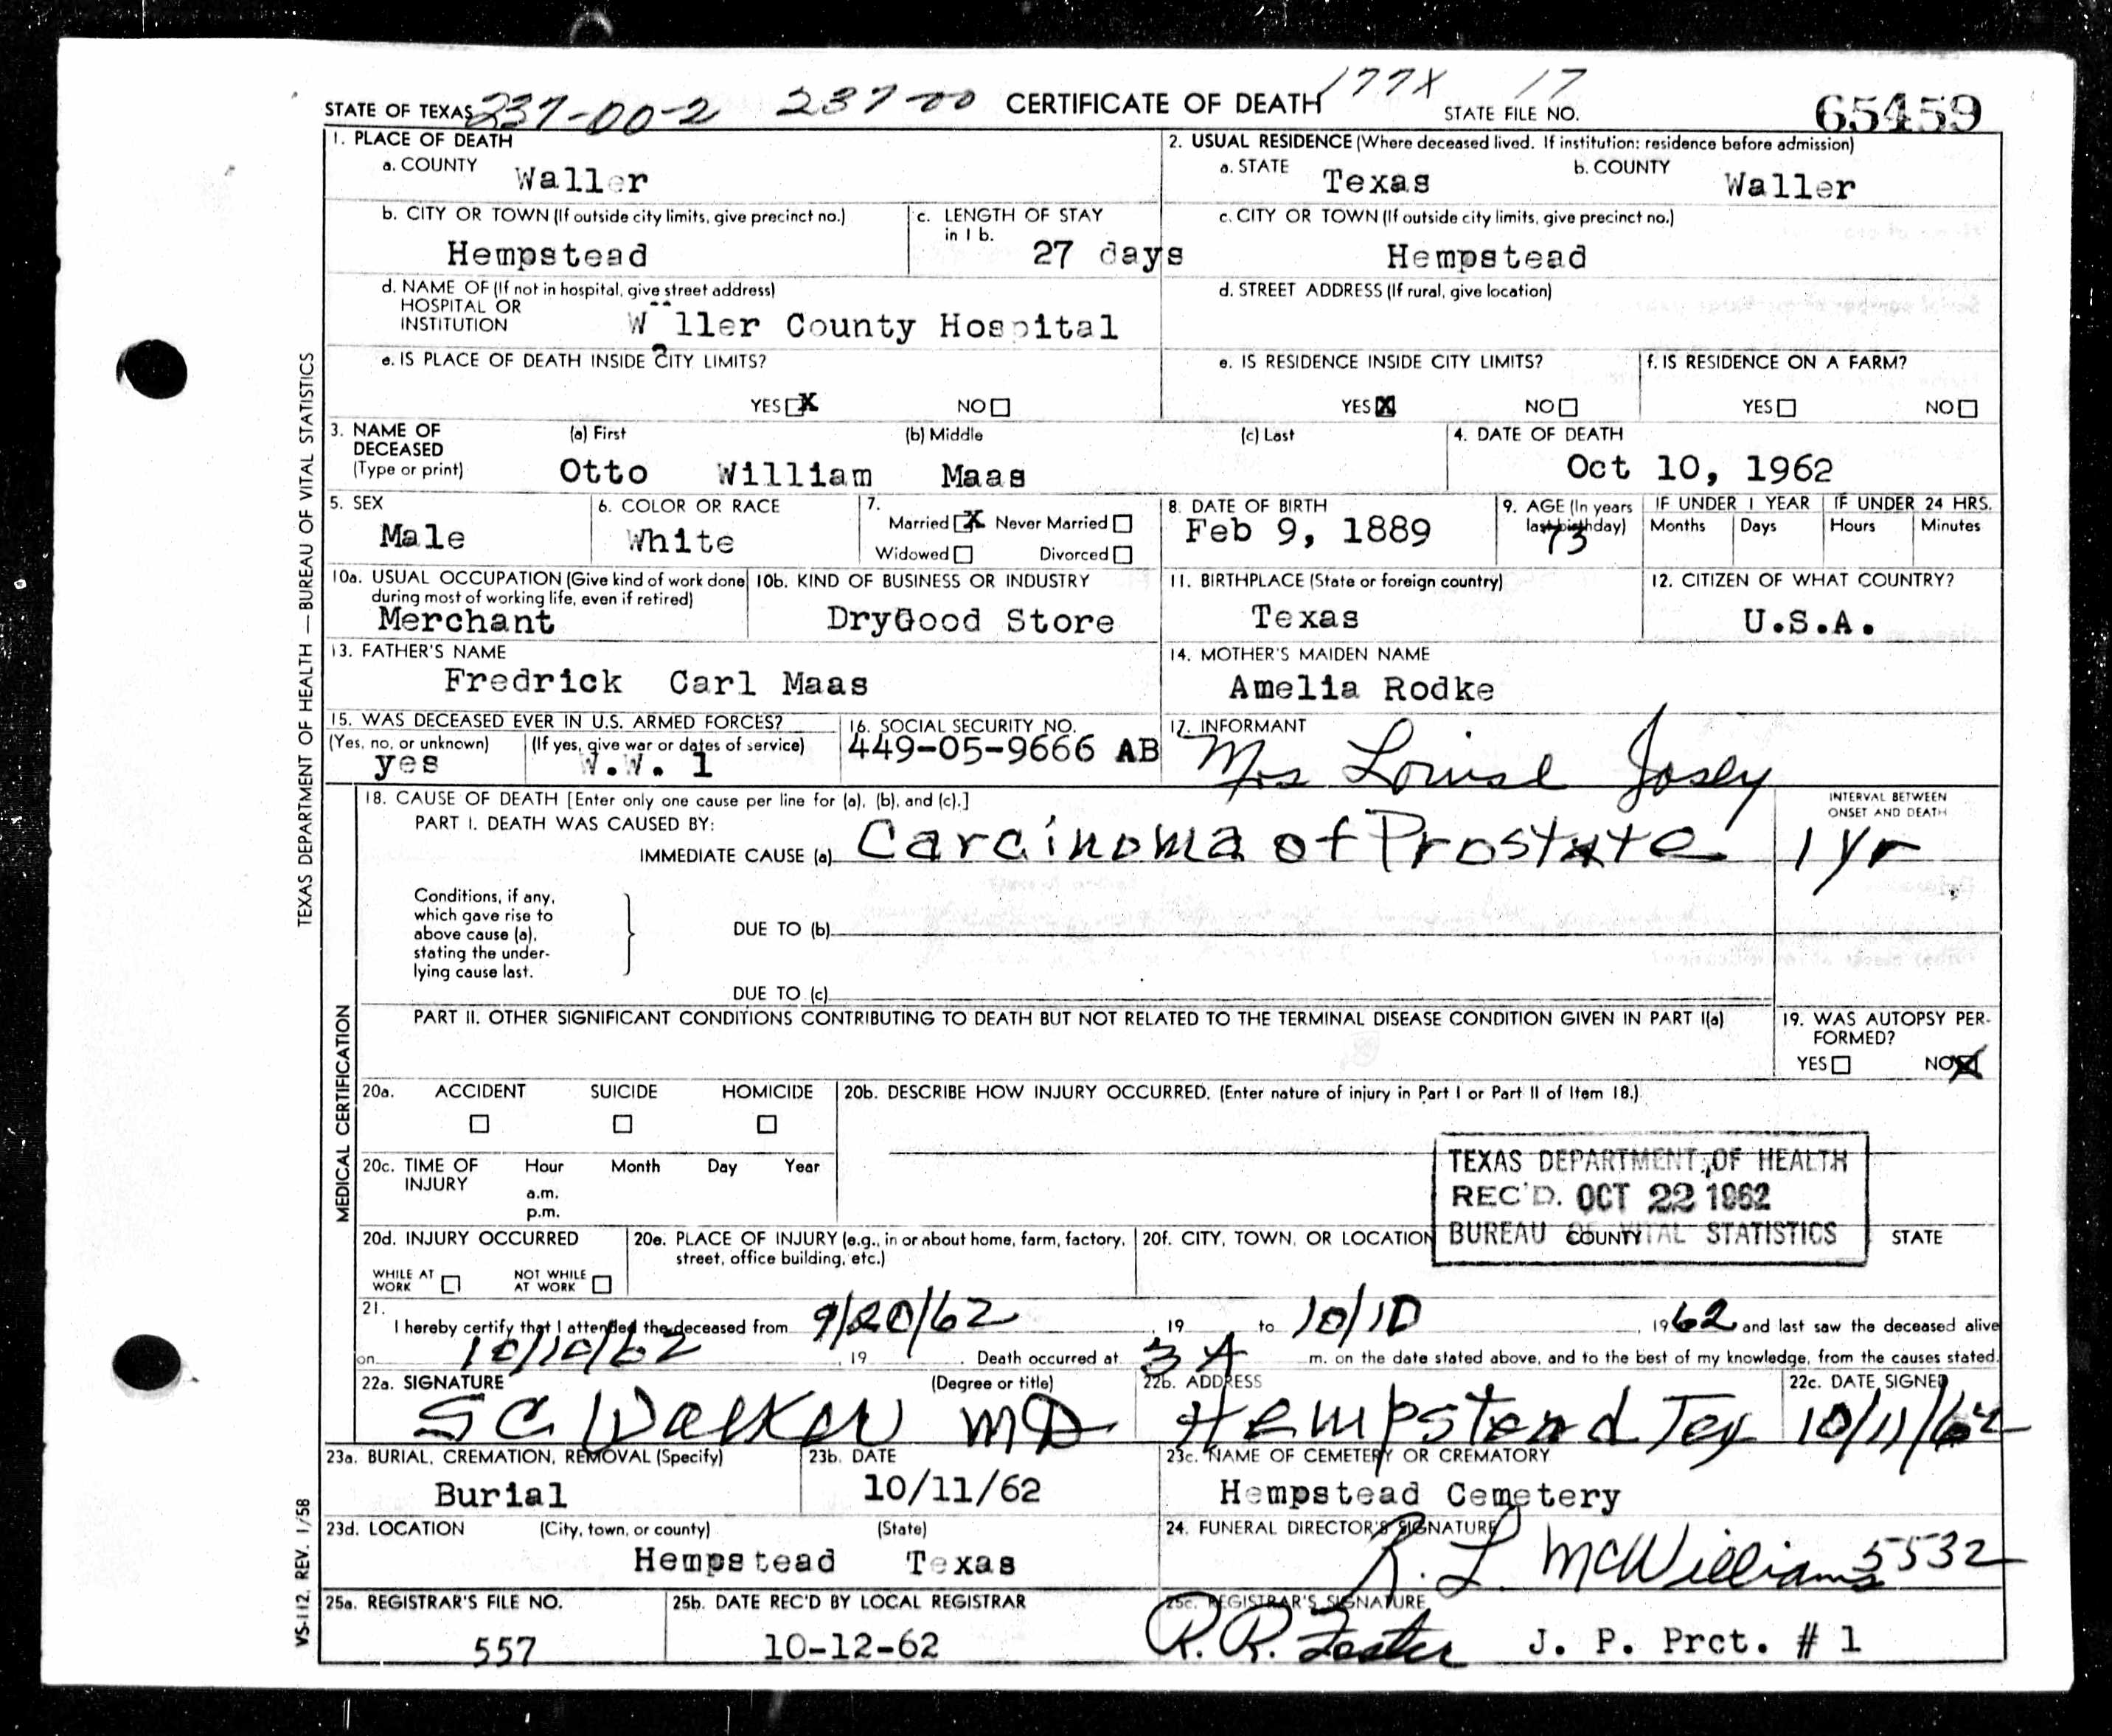 STATE OF TEXAS 237-00-2 237-00 CERTIFICATE OF DEATH 177X 17 STATE FILE NO. 65459
1. PLACE OF DEATH
a. COUNTY Waller
2. USUAL RESIDENCE (Where deceased lived. If institution: residence before admission)
a. STATE Texas b. COUNTY Waller
b. CITY OR TOWN (If outside city limits, give precinct no.)
Hempstead
c. LENGTH OF STAY in 1 b.
27 days
c. CITY OR TOWN (If outside city limits, give precinct no.)
Hempstead
d. NAME OF (If not in hospital, give street address)
HOSPITAL OR
INSTITUTION W ller County Hospital
d. STREET ADDRESS (If rural, give location)
e. IS PLACE OF DEATH INSIDE CITY LIMITS?
YES X NO
e. IS RESIDENCE INSIDE CITY LIMITS?
YES X NO
f. IS RESIDENCE ON A FARM?
YES NO
3. NAME OF DECEASED (Type or print)
(a) First (b) Middle (c) Last
Otto William Maas
4. DATE OF DEATH
Oct 10, 1962
5. SEX
Male
6. COLOR OR RACE
White
7.
Married X Never Married
Widowed Divorced
8. DATE OF BIRTH
Feb 9, 1889
9. AGE (In years last birthday)
73
IF UNDER 1 YEAR
Months Days
IF UNDER 24 HRS.
Hours Minutes
10a. USUAL OCCUPATION (Give kind of work done during most of working life, even if retired)
Merchant
10b. KIND OF BUSINESS OR INDUSTRY
DryGood Store
11. BIRTHPLACE (State or foreign country)
Texas
12. CITIZEN OF WHAT COUNTRY?
U.S.A.
13. FATHER'S NAME
Fredrick Carl Maas
14. MOTHER'S MAIDEN NAME
Amelia Rodke
15. WAS DECEASED EVER IN U.S. ARMED FORCES?
(Yes, no, or unknown) (If yes, give war or dates of service)
yes W.W. 1
16. SOCIAL SECURITY NO.
449-05-9666 AB
17. INFORMANT
Mrs Louise Josey
18. CAUSE OF DEATH [Enter only one cause per line for (a), (b), and (c).]
PART I. DEATH WAS CAUSED BY:
IMMEDIATE CAUSE (a) Carcinoma of Prostate
INTERVAL BETWEEN ONSET AND DEATH
1 yr
Conditions, if any,
which gave rise to
above cause (a),
stating the under-
lying cause last.
DUE TO (b)
DUE TO (c)
PART II. OTHER SIGNIFICANT CONDITIONS CONTRIBUTING TO DEATH BUT NOT RELATED TO THE TERMINAL DISEASE CONDITION GIVEN IN PART I(a)
19. WAS AUTOPSY PER-
FORMED?
YES NO X
20a. ACCIDENT SUICIDE HOMICIDE
20b. DESCRIBE HOW INJURY OCCURRED. (Enter nature of injury in Part I or Part II of Item 18.)
20c. TIME OF INJURY
Hour Month Day Year
a.m.
p.m.
TEXAS DEPARTMENT OF HEALTH
REC'D. OCT 22 1962
BUREAU OF VITAL STATISTICS
20d. INJURY OCCURRED
WHILE AT WORK NOT WHILE AT WORK
20e. PLACE OF INJURY (e.g., in or about home, farm, factory, street, office building, etc.)
20f. CITY, TOWN, OR LOCATION COUNTY STATE
21.
I hereby certify that I attended the deceased from 9/20/62, 19 to 10/10, 1962 and last saw the deceased alive
on 10/10/62, 19 . Death occurred at 3 A m. on the date stated above, and to the best of my knowledge, from the causes stated.
22a. SIGNATURE (Degree or title)
SC Walker MD
22b. ADDRESS
Hempstead Tex
22c. DATE SIGNED
10/11/62
23a. BURIAL, CREMATION, REMOVAL (Specify)
Burial
23b. DATE
10/11/62
23c. NAME OF CEMETERY OR CREMATORY
Hempstead Cemetery
23d. LOCATION (City, town, or county) (State)
Hempstead Texas
24. FUNERAL DIRECTOR'S SIGNATURE
R. L. McWilliams 5532
25a. REGISTRAR'S FILE NO.
557
25b. DATE REC'D BY LOCAL REGISTRAR
10-12-62
25c. REGISTRAR'S SIGNATURE
R. R. Fester J. P. Prct. # 1
TEXAS DEPARTMENT OF HEALTH — BUREAU OF VITAL STATISTICS
MEDICAL CERTIFICATION
VS-112, REV. 1/58